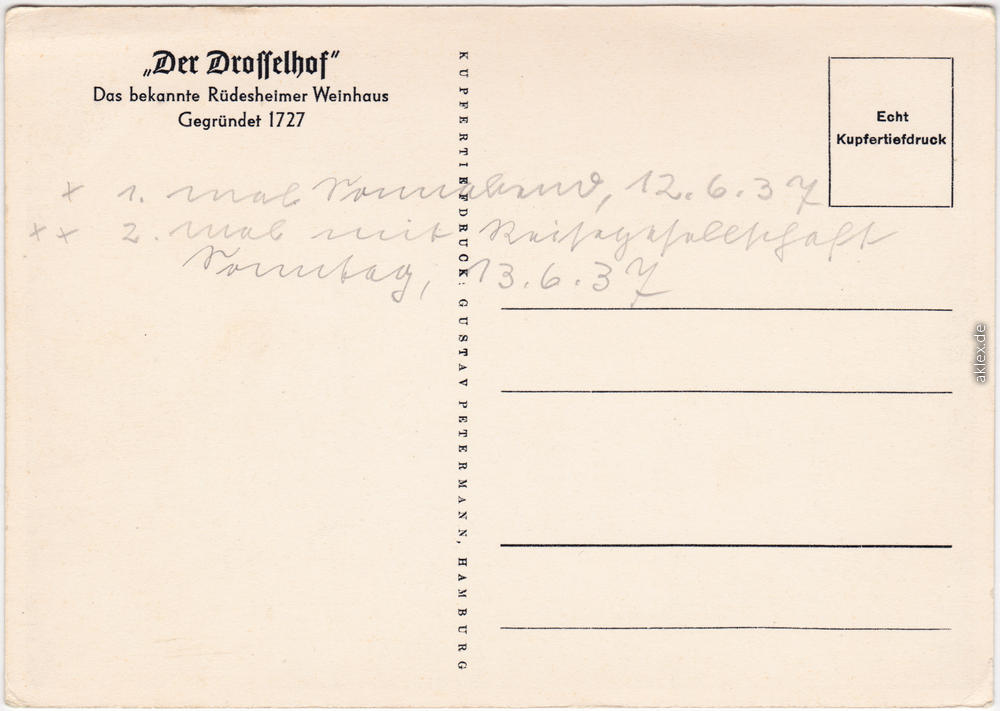 „Der Drosselhof"
Das bekannte Rüdesheimer Weinhaus
Gegründet 1727
KUPFERTIEFDRUCK: GUSTAV PETERMANN, HAMBURG
Echt
Kupfertiefdruck
× 1. mal Sonnabend, 12.6.37
×× 2. mal mit Reisegesellschaft
Sonntag, 13.6.37
aklex.de